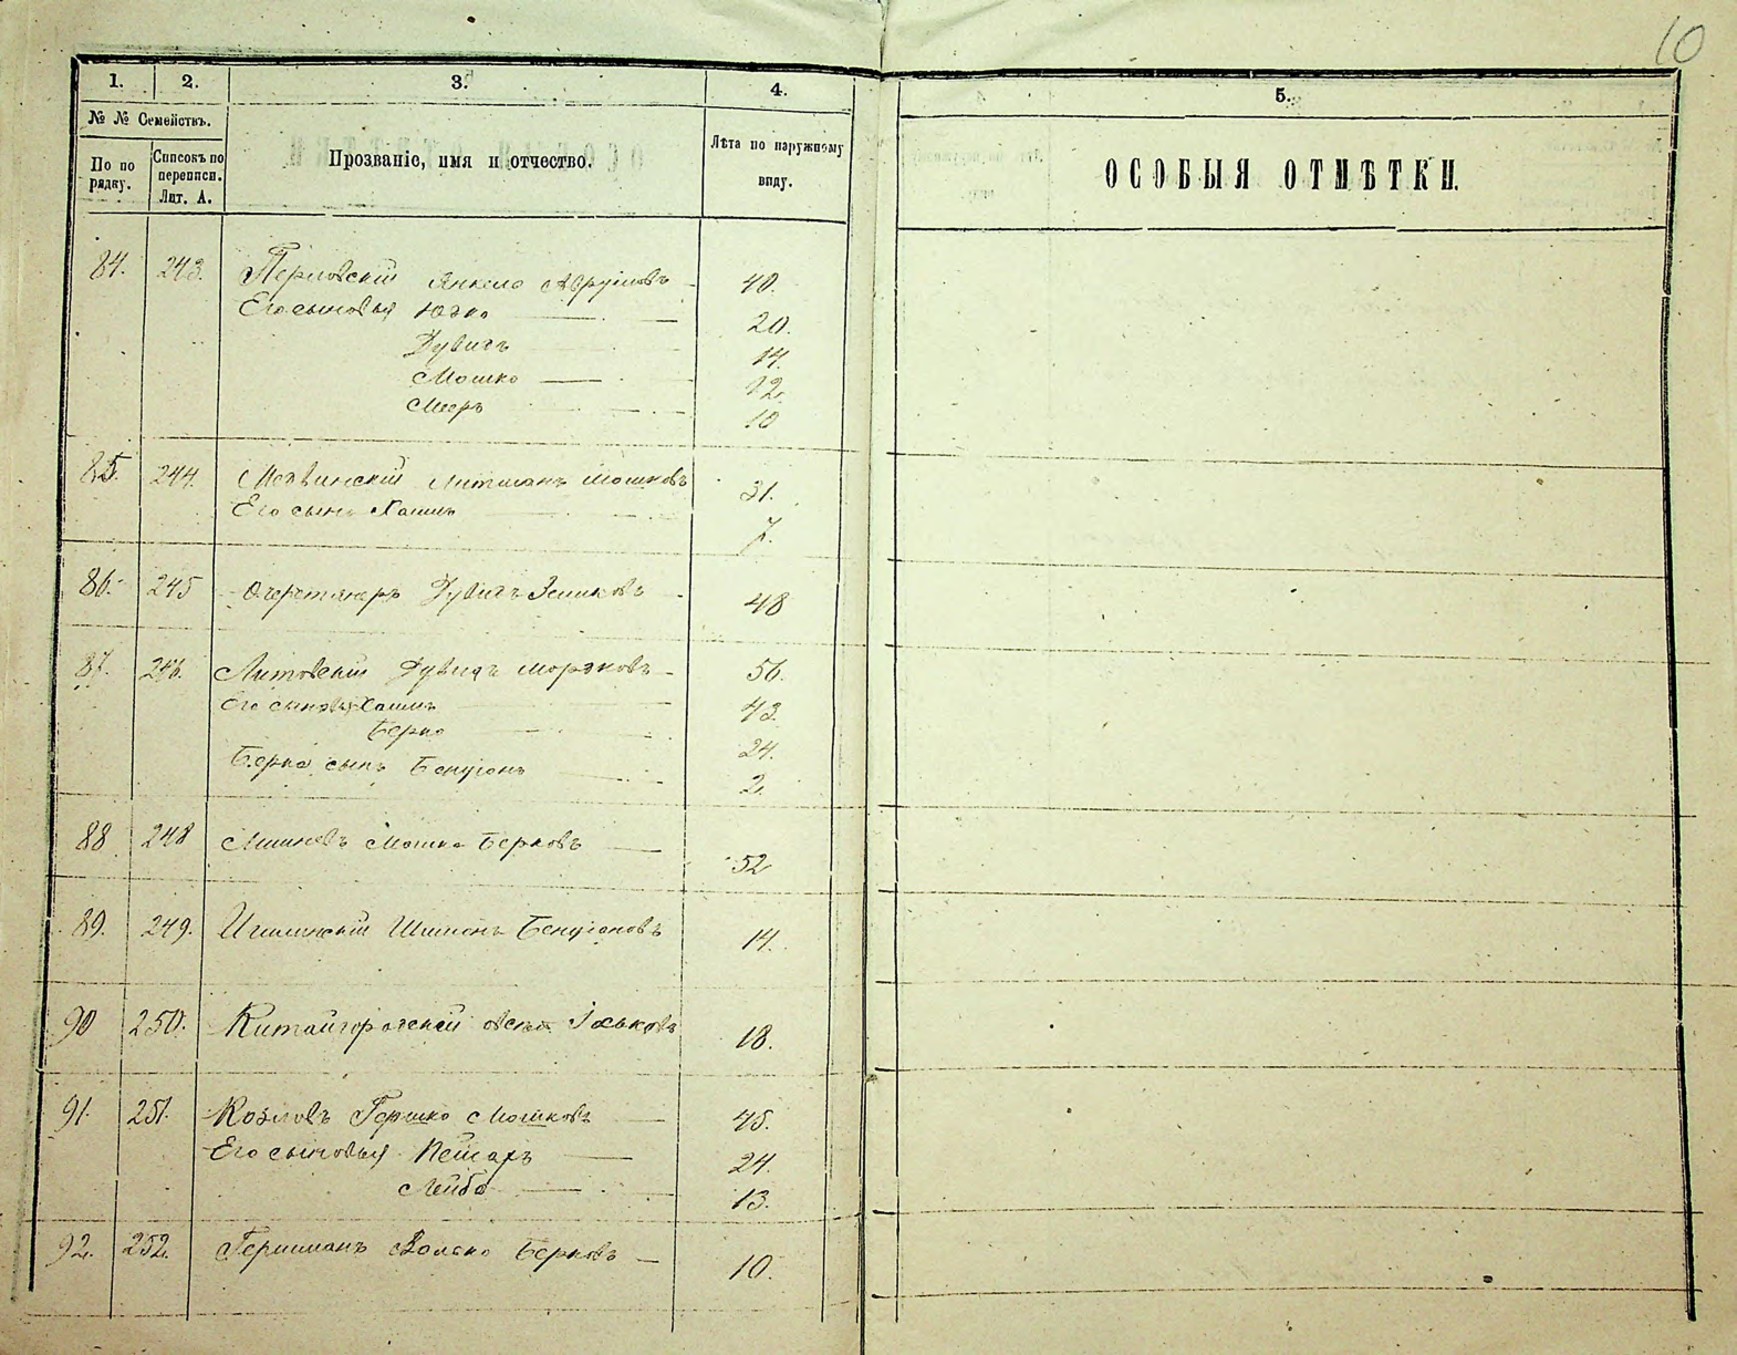 10
1. 2. 3. 4. 5.
№ № Семействъ.
По по рядку.
Списокъ по переписи. Лит. А.
Прозваніе, имя и отчество.
Лѣта по наружному виду.
ОСОБЫЯ ОТМѢТКИ.
84. 243. Перловскій Янкель Аврумовъ 40.
Его сыновья Юзко 20.
Дувидъ 14.
Мошко 12.
Мееръ 10
85. 244. Медвинскій Литманъ Мошковъ 31.
Его сынъ Хаимъ 7.
86. 245 Очеретянеръ Дувидъ Зеликовъ 48
87. 246. Литовскій Дувидъ Мордковъ 56.
Его сыновья Хаимъ 43.
Берко 24.
Берка сынъ Бенціонъ 2.
88 248 Мошко Берковъ 52
89. 249. Шимонъ Бенціоновъ 14.
90 250. Китайгородскій 18.
91. 251. Козловъ Гершко Мошковъ 45.
Его сыновья 24.
Лейба 13.
92. 252. Гершманъ Волько Берковъ 10.